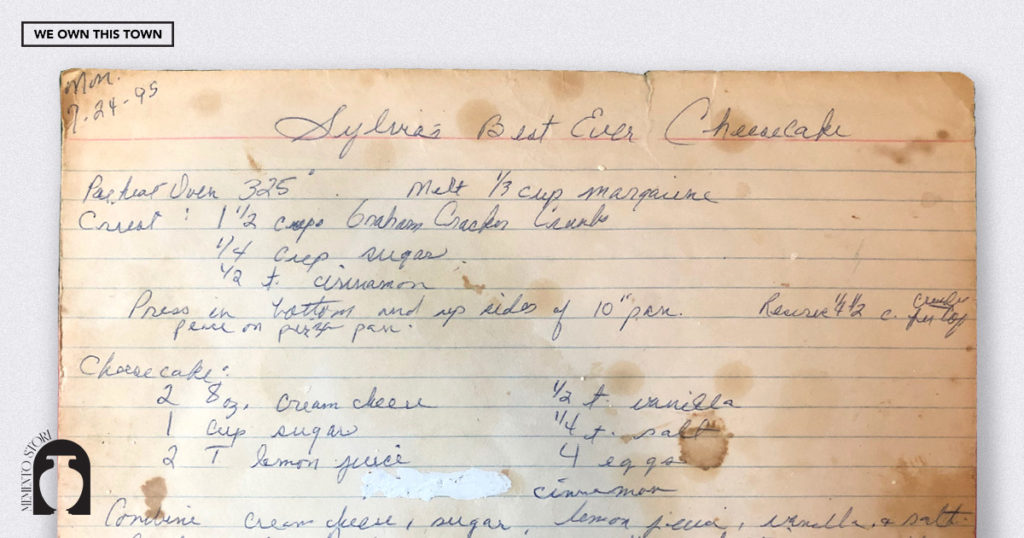 WE OWN THIS TOWN
Mon.
7-24-95
Sylvia's Best Ever Cheesecake
Preheat Oven 325° . Melt 1/3 cup margarine
Crust : 1 1/2 cups Graham Cracker Crumbs
1/4 cup sugar
1/2 t. cinnamon
Press in bottom and up sides of 10" pan. Reserve 1/2 c. crumbs
for top
on pizza pan.
Cheesecake:
2 8oz. cream cheese 1/2 t. vanilla
1 cup sugar 1/4 t. salt
2 T lemon juice 4 eggs
cinnamon
MEMENTO STORI
Combine cream cheese, sugar, lemon juice, vanilla, & salt.